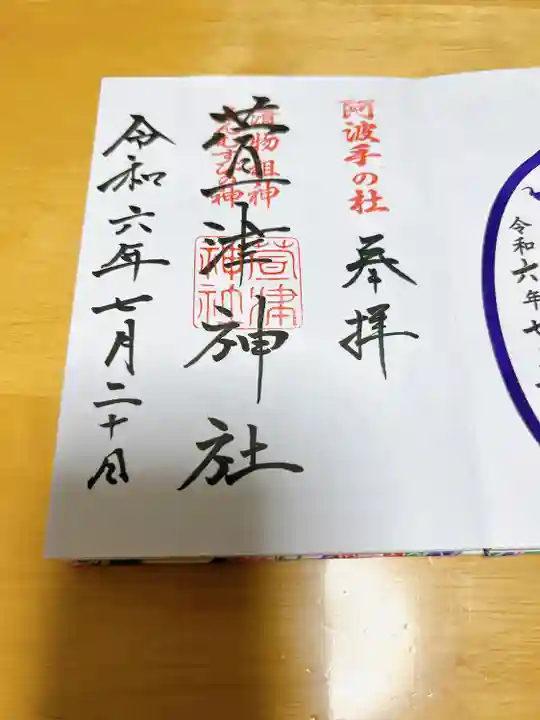 阿波手の社
奉拝
漬物祖神
えんむすびの神
萱津神社
萱津神社
令和六年七月二十日
令和六年七